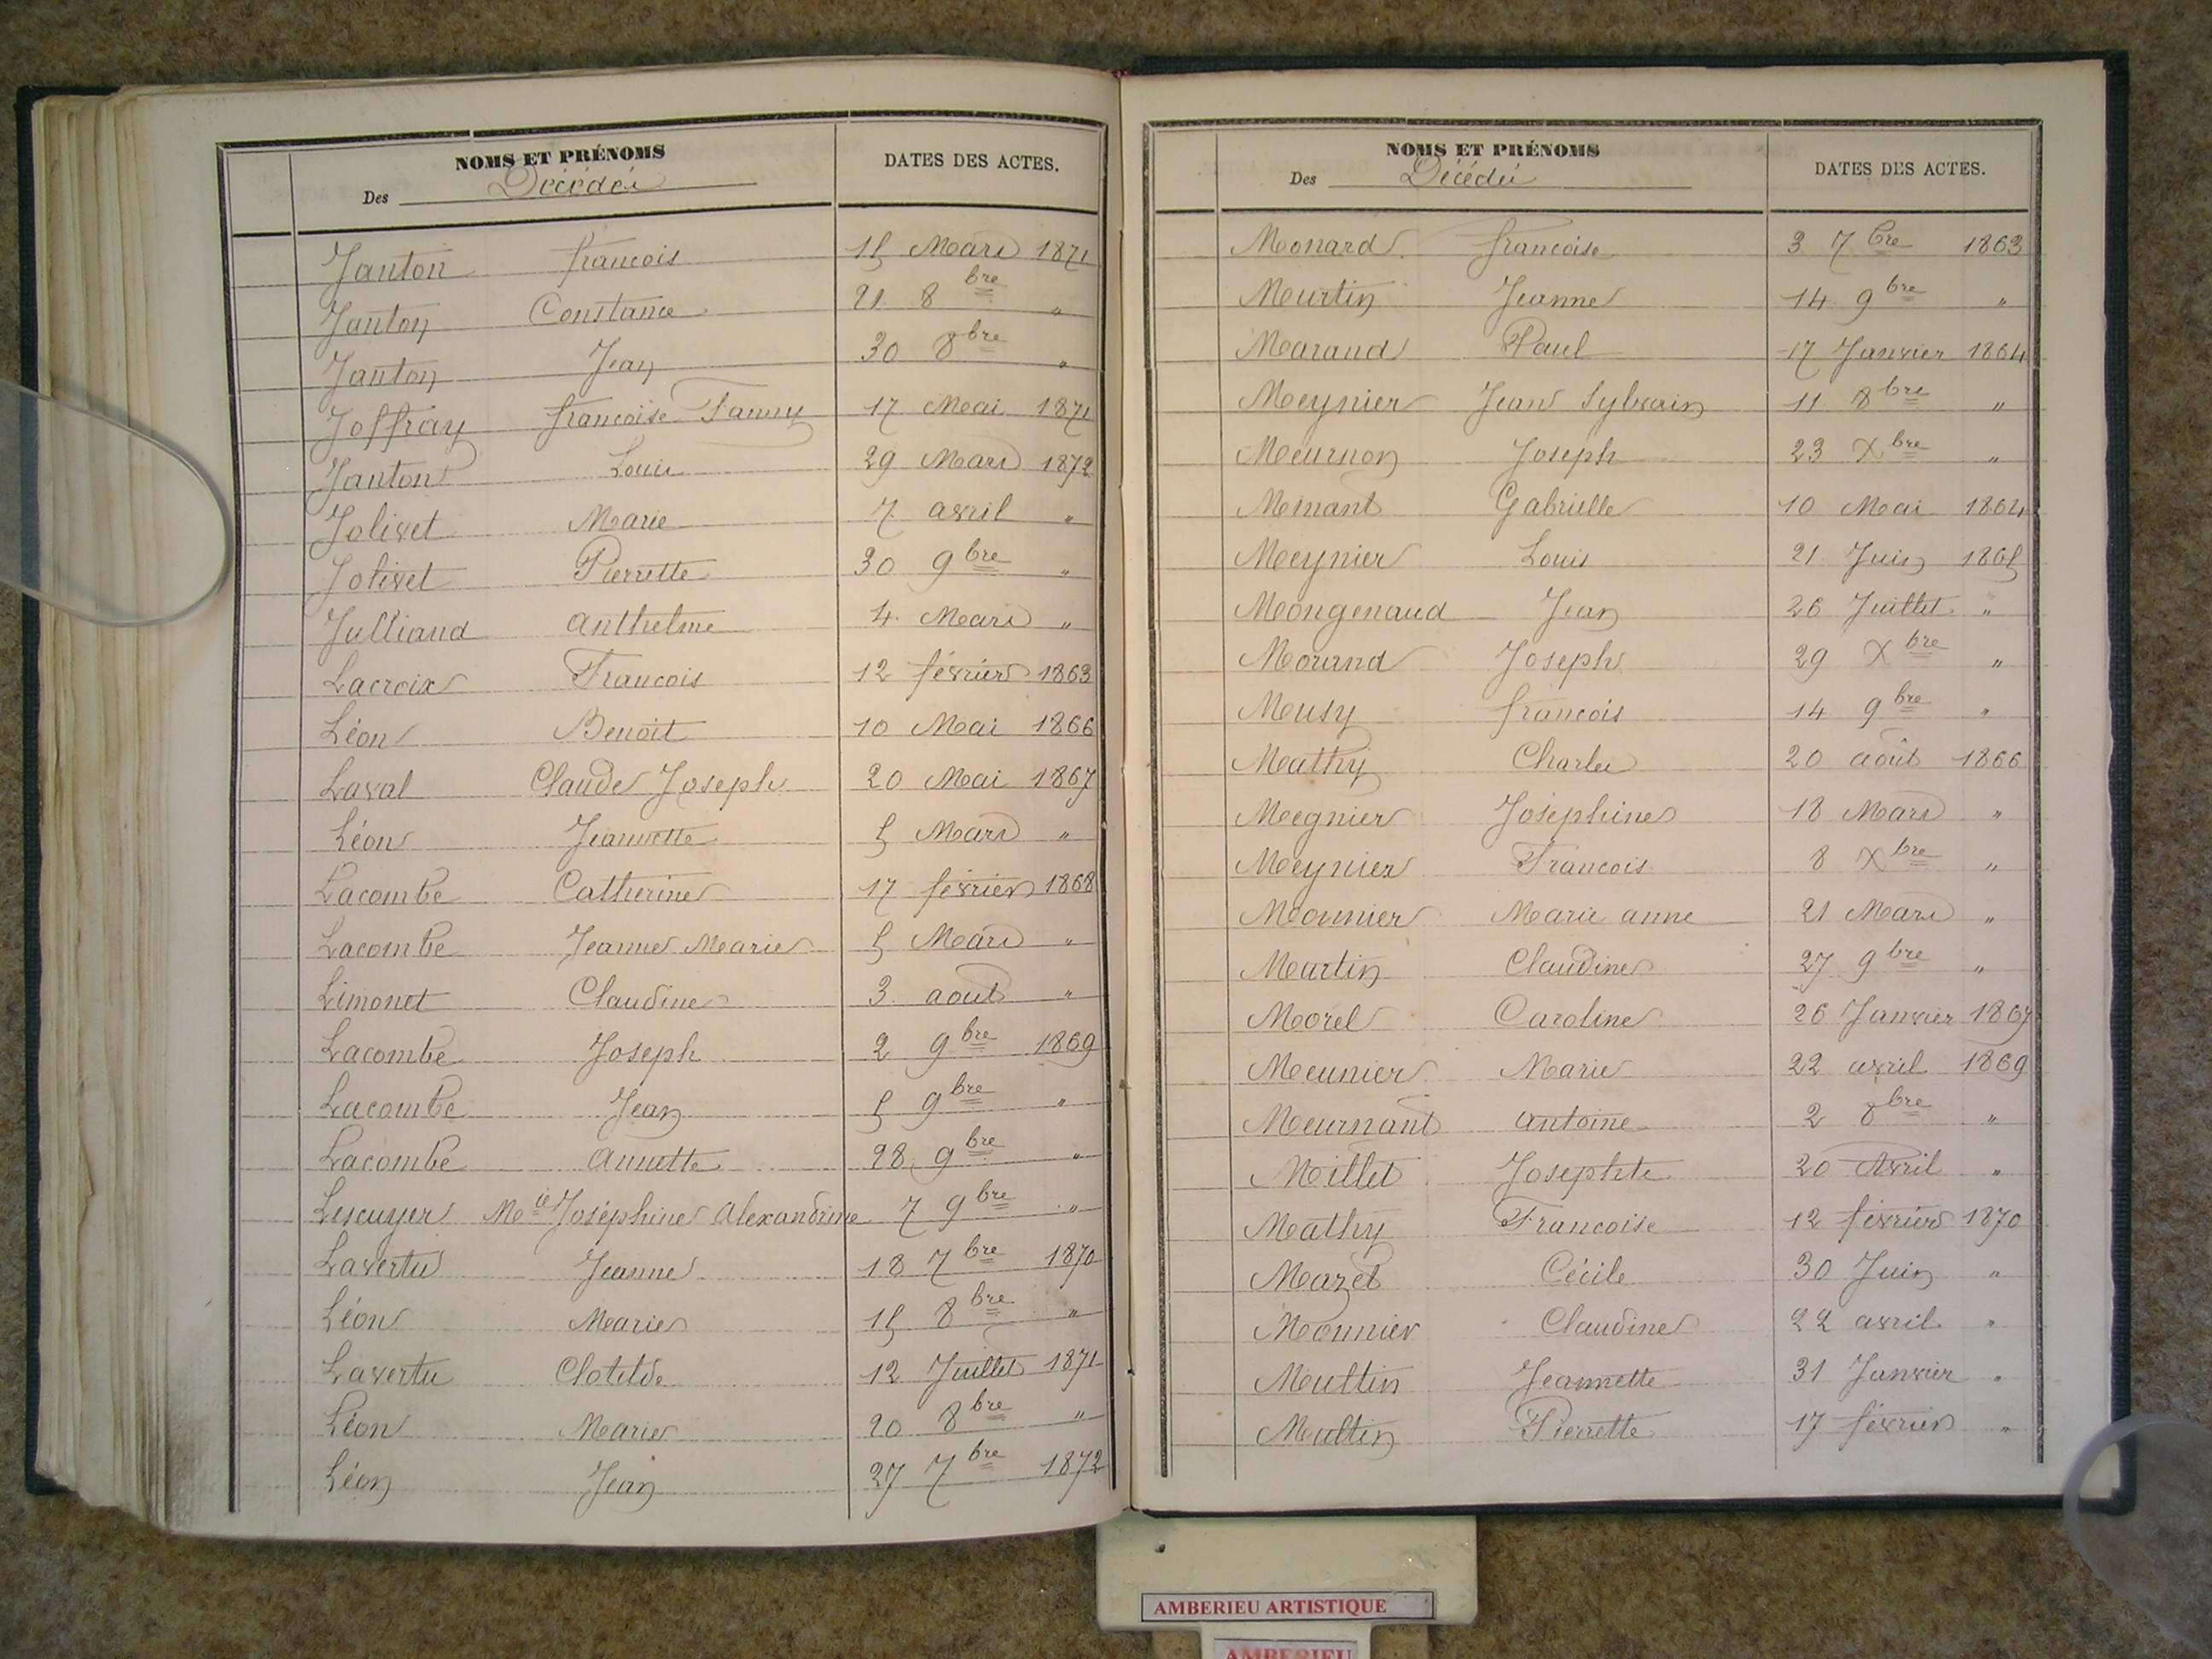 NOMS ET PRÉNOMS
Des Décédés
DATES DES ACTES.
Janton François 15 Mars 1871
Janton Constance 21 8bre "
Janton Jean 30 8bre "
Joffray Françoise Fanny 17 Mai 1871
Janton Louis 29 Mars 1872
Jolivet Marie 7 avril "
Jolivet Pierrette 30 9bre "
Julliand Anthelme 4 Mars "
Lacroix François 12 février 1863
Léon Benoit 10 Mai 1866
Laval Claude Joseph 20 Mai 1867
Léon Jeannette 5 Mars "
Lacombe Catherine 17 février 1868
Lacombe Jeanne Marie 5 Mars "
Limonet Claudine 3 aout "
Lacombe Joseph 2 9bre 1869
Lacombe Jean 5 9bre "
Lacombe Annette 28 9bre "
Lescuyer Mie Joséphine Alexandrine 7 9bre "
Lavertu Jeanne 18 7bre 1870
Léon Marie 15 8bre "
Lavertu Clotilde 12 Juillet 1871
Léon Marie 20 8bre "
Léon Jean 27 7bre 1872
NOMS ET PRÉNOMS
Des Décédés
DATES DES ACTES.
Monard Françoise 3 7bre 1863
Murtin Jeanne 14 9bre "
Marand Paul 17 Janvier 1864
Meynier Jean Sylvain 11 8bre "
Meurnon Joseph 23 Xbre "
Minant Gabrielle 10 Mai 1864
Meynier Louis 21 Juin 1865
Mongenaud Jean 26 Juillet "
Morand Joseph 29 Xbre "
Musy François 14 9bre "
Mathy Charles 20 août 1866
Megnier Joséphine 18 Mars "
Meynier François 8 Xbre "
Mounier Marie anne 21 Mars "
Martin Claudine 27 9bre "
Morel Caroline 26 Janvier 1867
Meunier Marie 22 avril 1869
Meurnant Antoine 2 8bre "
Millet Josephte 20 Avril "
Mathy Françoise 12 février 1870
Mazet Cécile 30 Juin "
Monnier Claudine 22 avril "
Multin Jeannette 31 Janvier "
Multin Pierrette 17 février "
AMBERIEU ARTISTIQUE
AMBERIEU